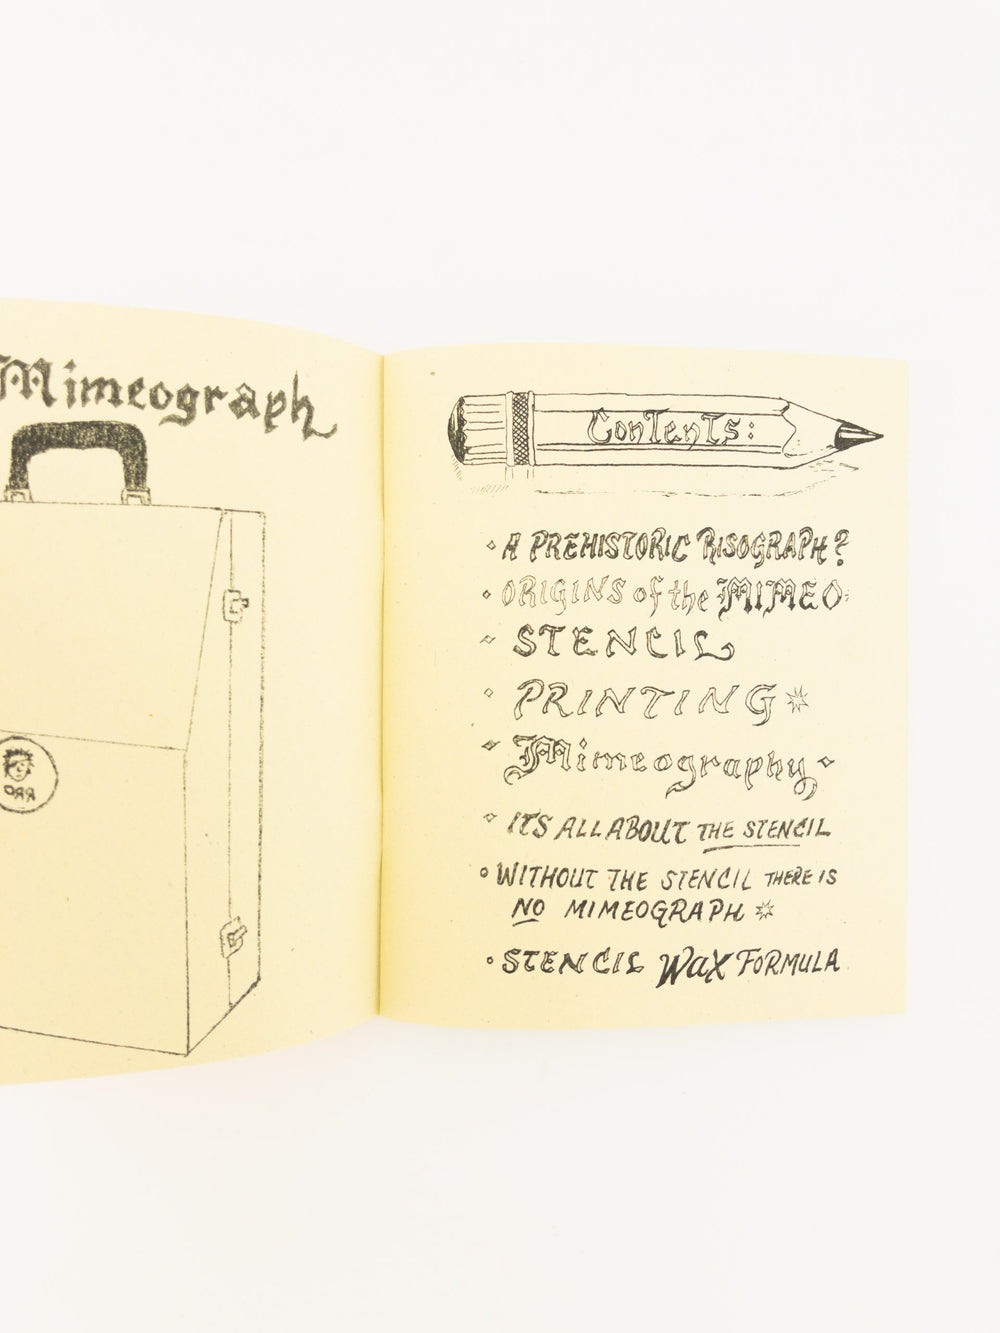 Mimeograph
ORR
Contents:
A PREHISTORIC RISOGRAPH?
ORIGINS of the MIMEO
STENCIL
PRINTING
Mimeography
ITS ALL ABOUT THE STENCIL
WITHOUT THE STENCIL THERE IS
NO MIMEOGRAPH
STENCIL WAX FORMULA